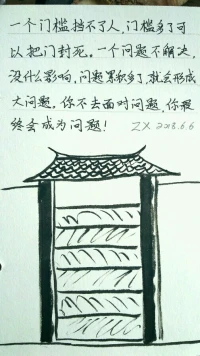 一个门槛挡不了人,门槛多了可
以把门封死。一个问题不解决,
没什么影响,问题累积多了,就会形成
大问题。你不去面对问题,你最
终会成为问题!
ZX 2018.6.6